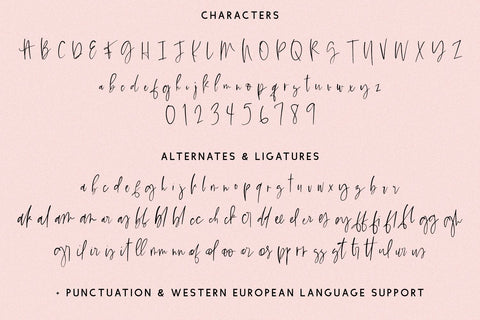 CHARACTERS
A B C D E F G H I J K L M N O P Q R S T U V W X Y Z
a b c d e f g h i j k l m n o p q r s t u v w x y z
0 1 2 3 4 5 6 7 8 9
ALTERNATES & LIGATURES
a b c d e f g h i j k l m n o p q r s t u v w x y z
ak al am an ar ay bb bl bl cc ch ck cl dd ee el er es ey ff fi fl fl gg gh
il ir is it ll mm nn of ol oo or os pp rr ss st tt tt ul ur us
+ PUNCTUATION & WESTERN EUROPEAN LANGUAGE SUPPORT